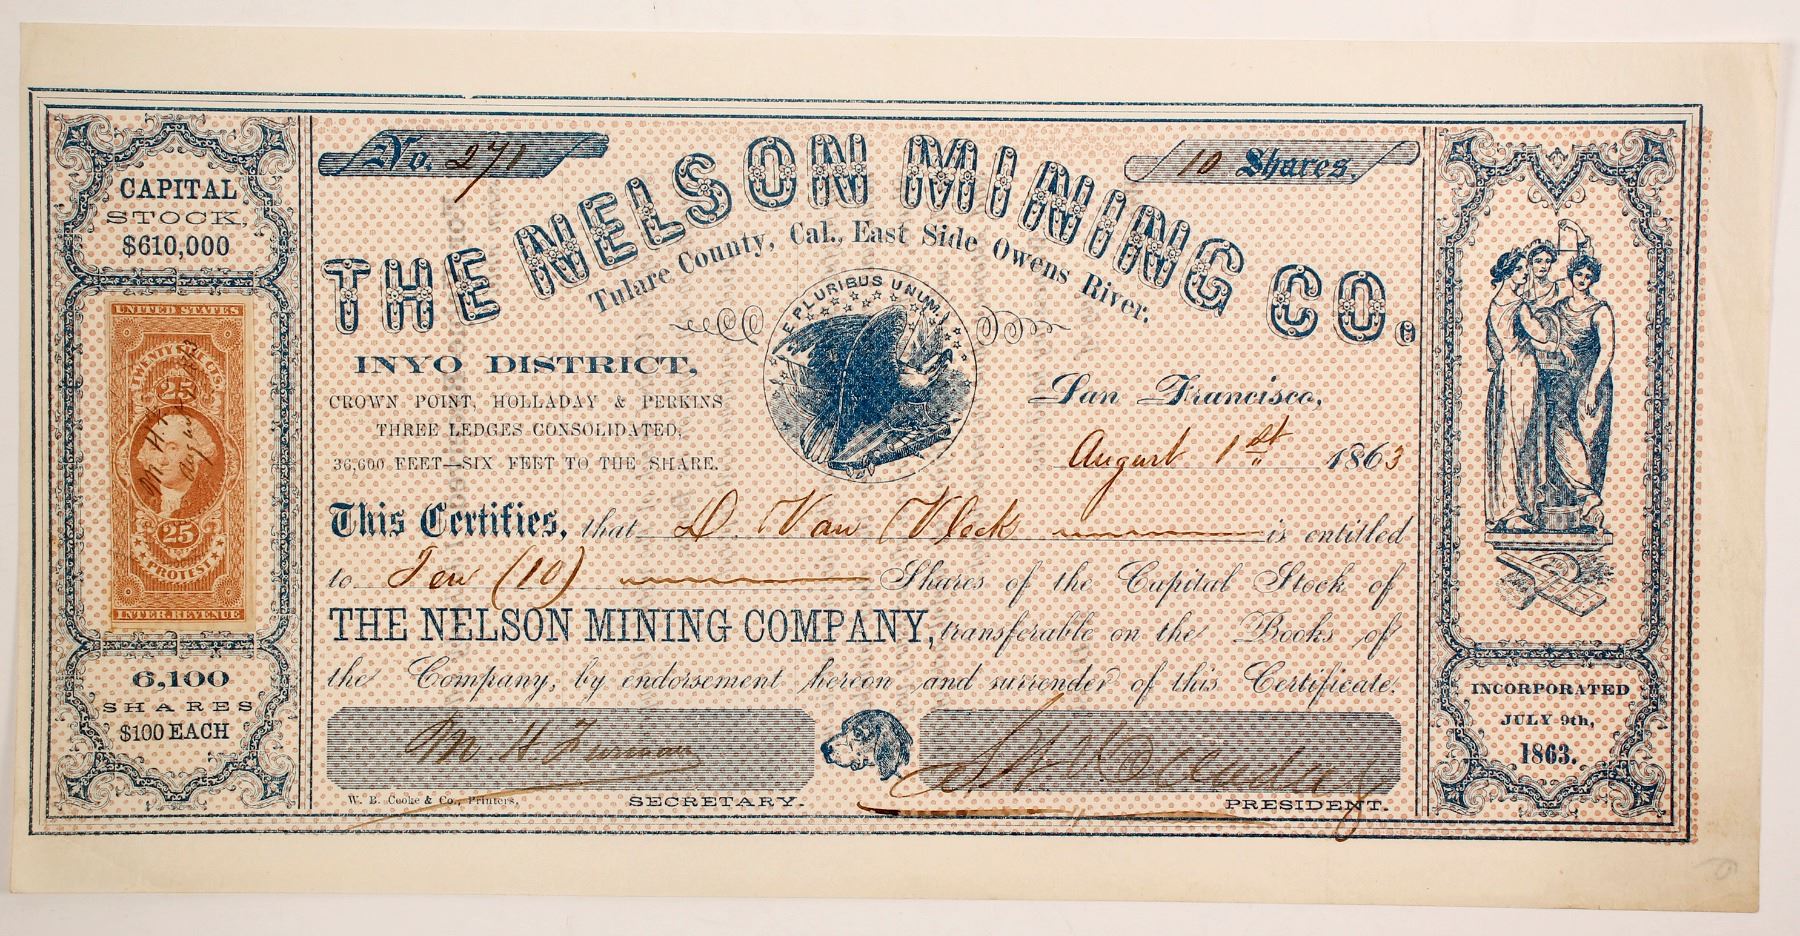 No. 271
10 Shares
THE NELSON MINING CO.
Tulare County, Cal., East Side Owens River.
E PLURIBUS UNUM
CAPITAL
STOCK,
$610,000
UNITED STATES
TWENTY FIVE CTS.
25
M. H. F.
Aug
25
PROTEST
INTER. REVENUE
6,100
SHARES
$100 EACH
INYO DISTRICT,
CROWN POINT, HOLLADAY & PERKINS
THREE LEDGES CONSOLIDATED,
36,600 FEET—SIX FEET TO THE SHARE.
San Francisco,
August 1st 1863
This Certifies, that D. Van Vleck is entitled
to Ten (10) Shares of the Capital Stock of
THE NELSON MINING COMPANY, transferable on the Books of
the Company, by endorsement hereon and surrender of this Certificate.
M. H. Furman
W. B. Cooke & Co., Printers,
SECRETARY.
PRESIDENT.
INCORPORATED
JULY 9th,
1863.